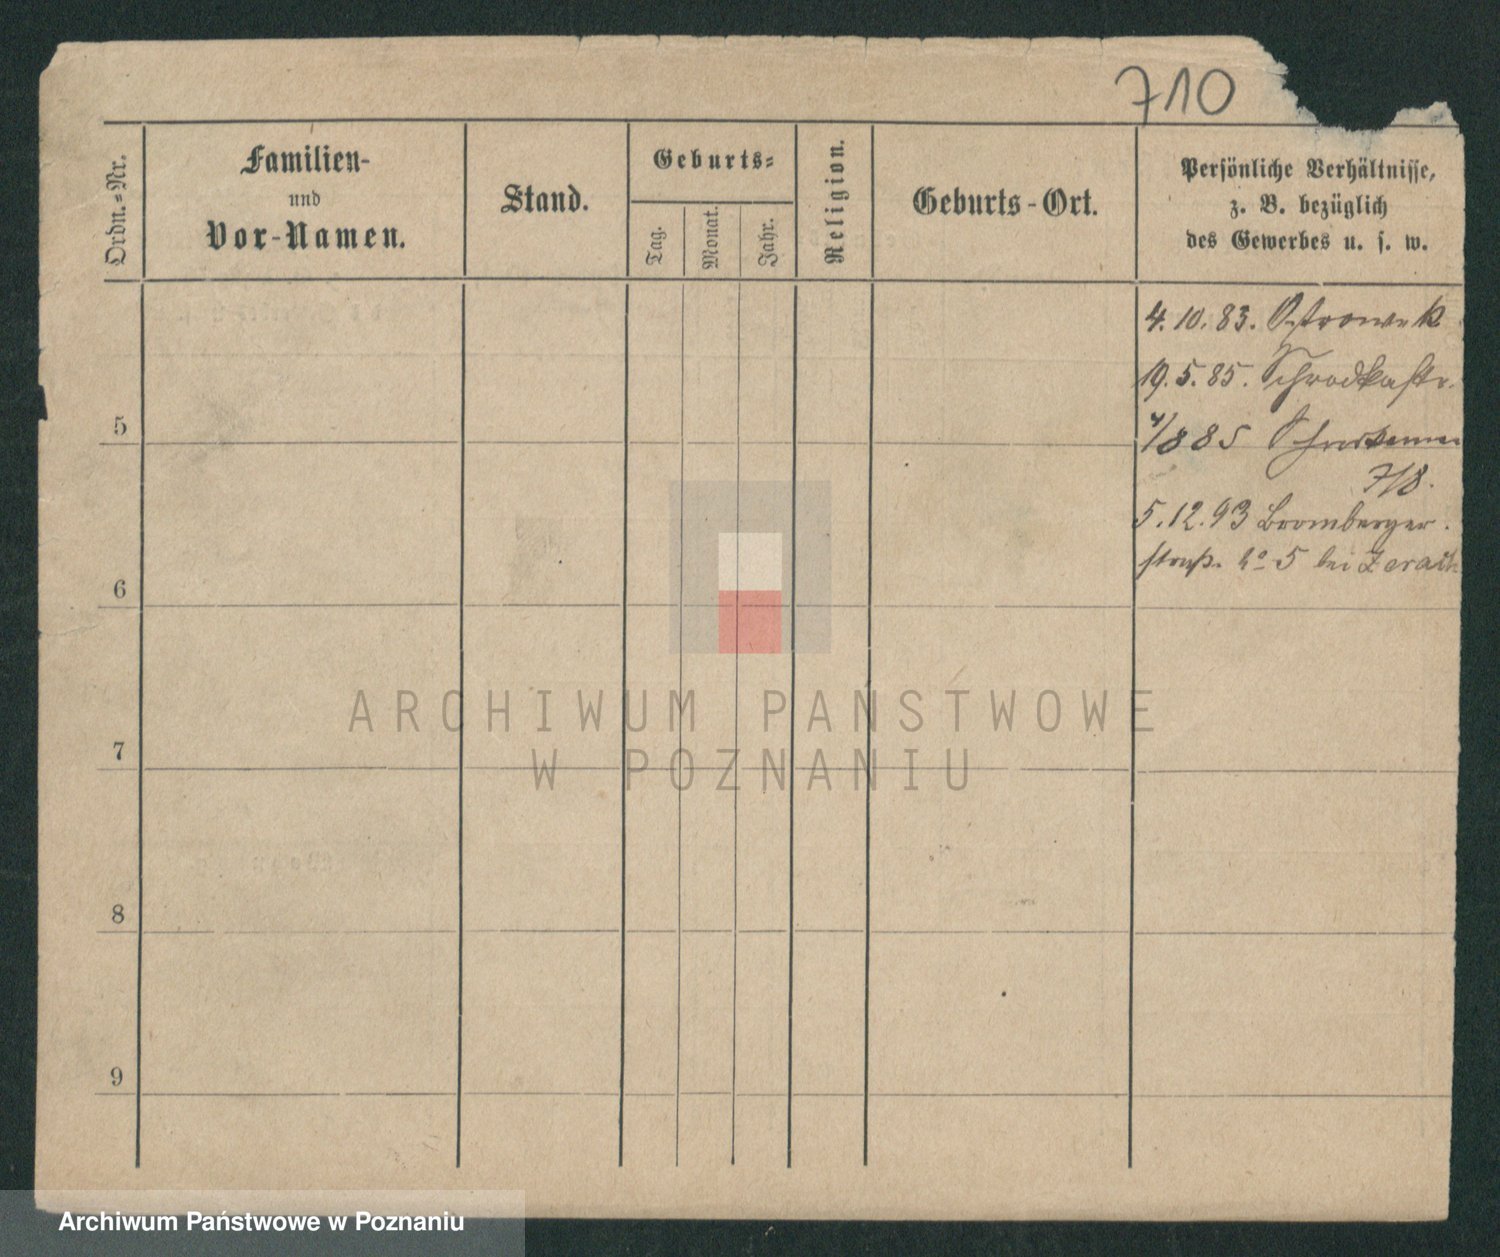 710
Ordn.=Nr.
Familien-
und
Vor-Namen.
Stand.
Geburts=
Tag.
Monat.
Jahr.
Religion.
Geburts-Ort.
Persönliche Verhältnisse,
z. B. bezüglich
des Gewerbes u. s. w.
4. 10. 83. Ostrowek
19. 5. 85. Schrodkastr.
5
4/8 85
7/8.
5. 12. 93 Bromberger
straß. No 5 bei
6
7
8
9
ARCHIWUM PAŃSTWOWE
W POZNANIU
Archiwum Państwowe w Poznaniu